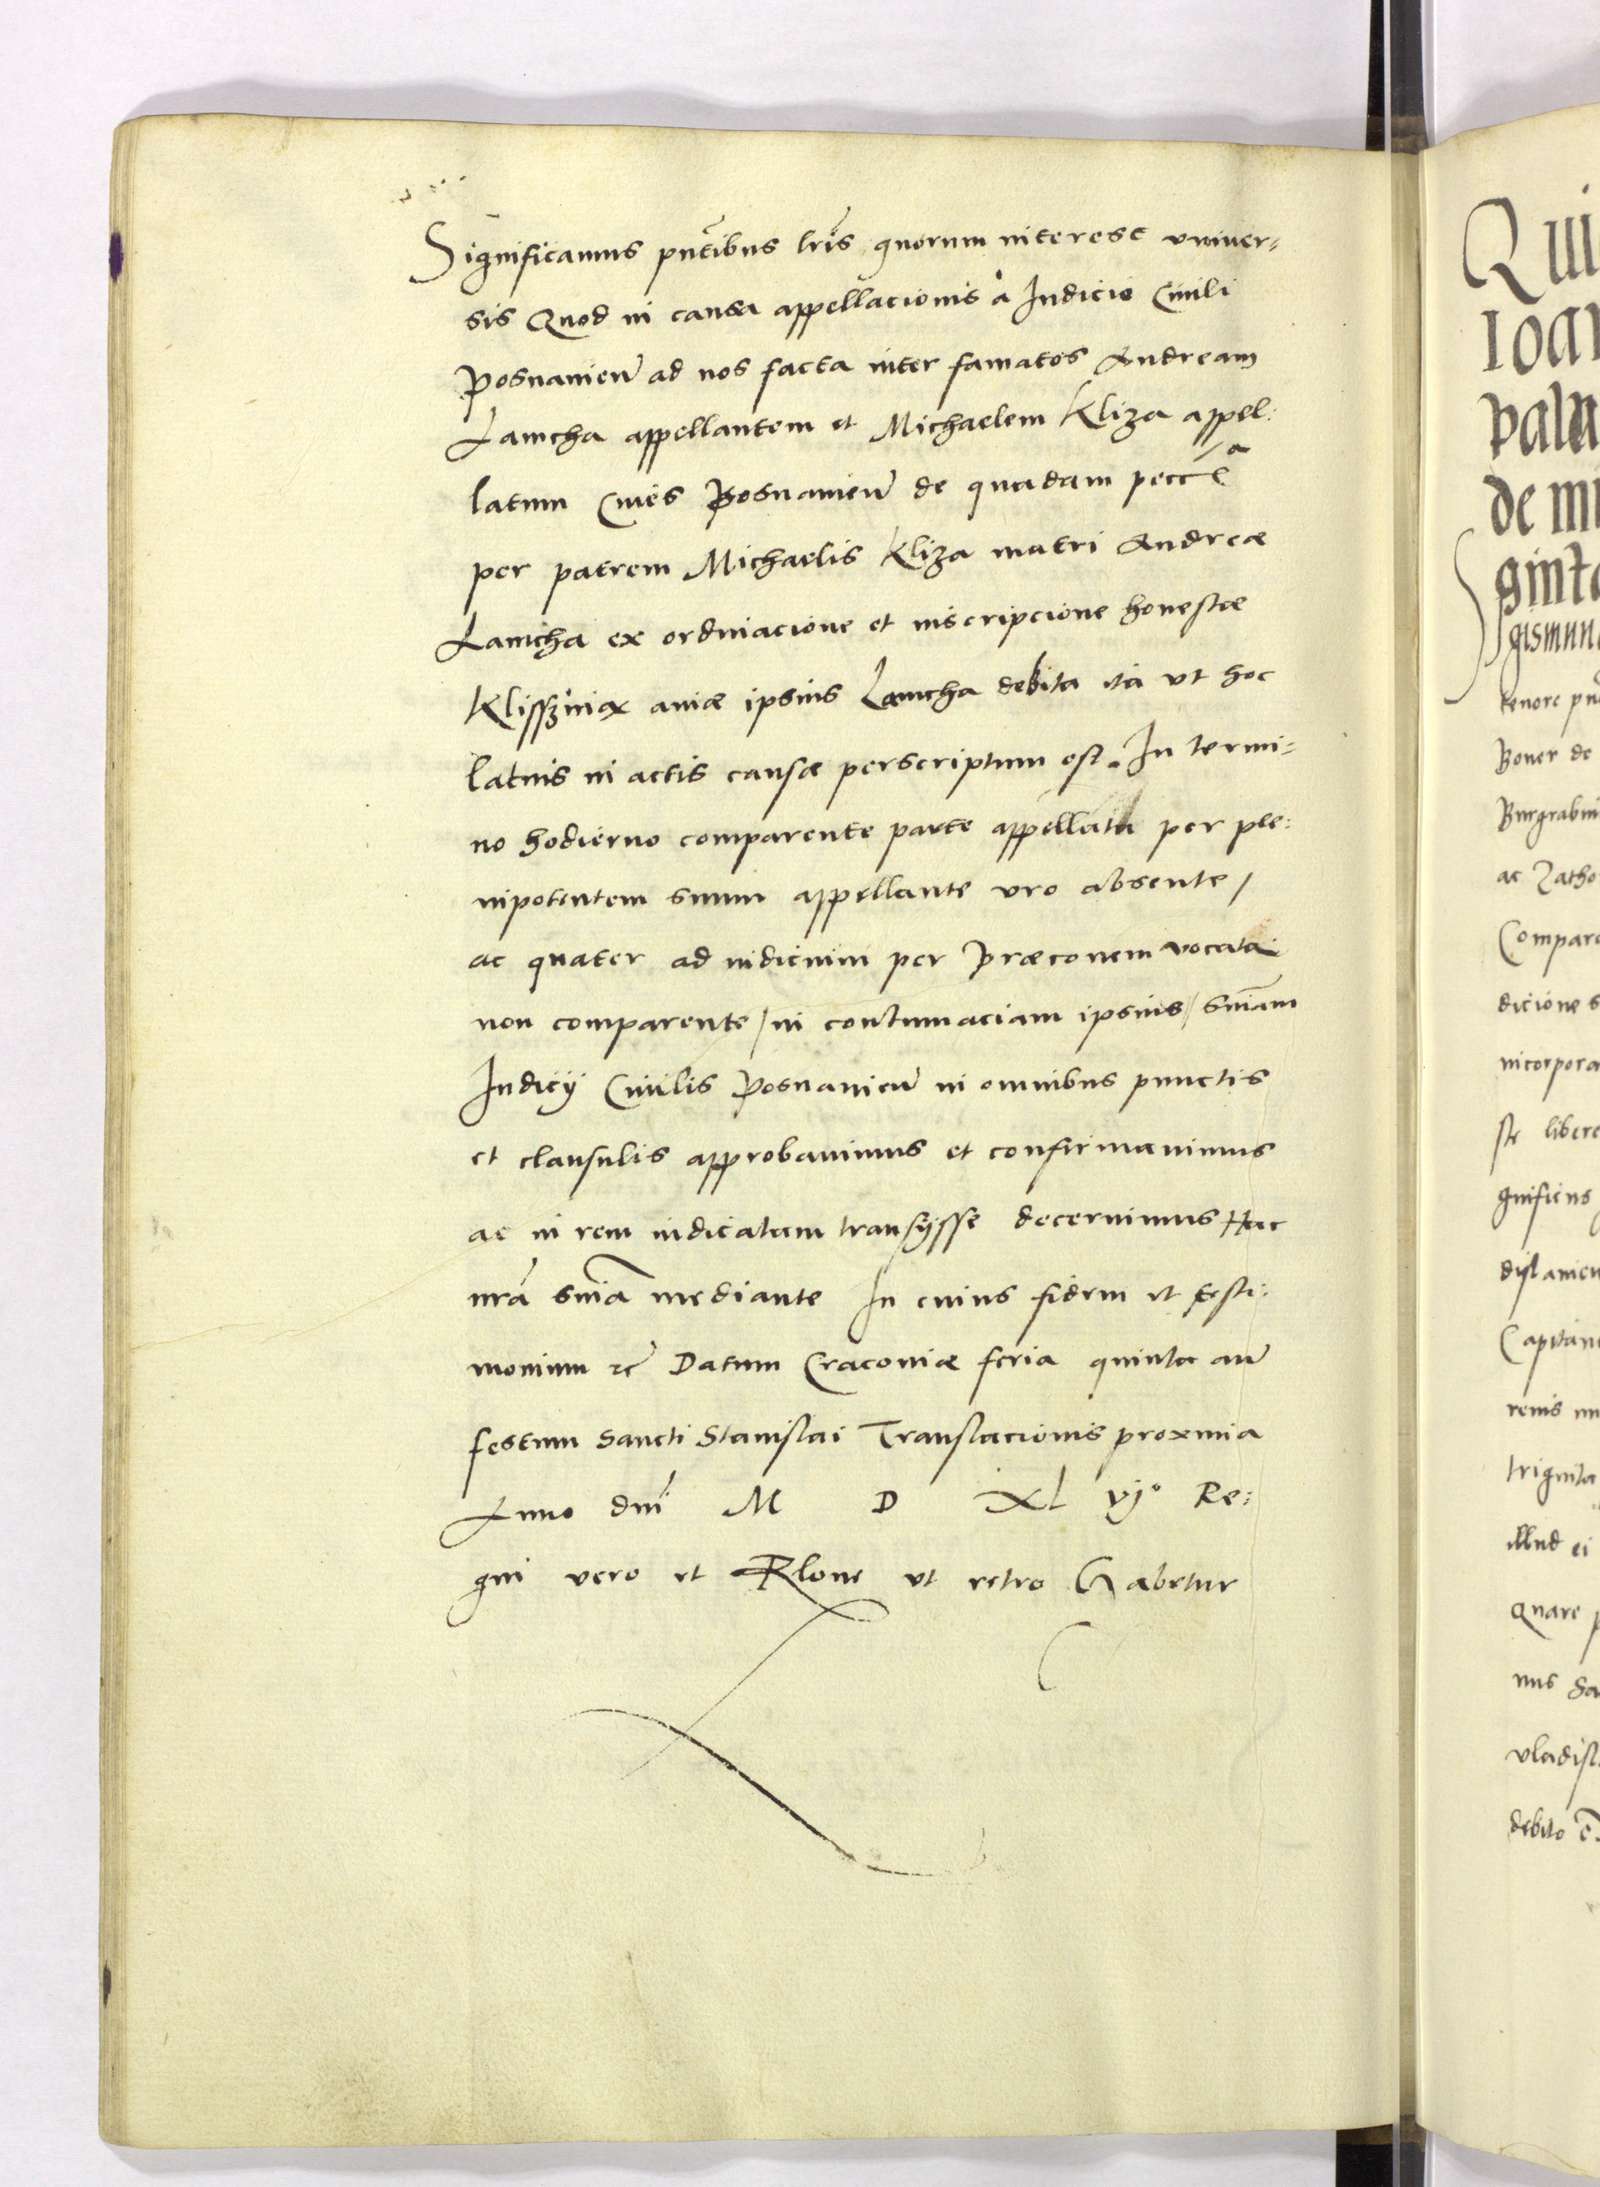 Significamus pn̄tibus lris̄ quorum interest vniuer-
sis Quod in causa appellacionis a Iudicio Ciuili
Posnanien̄ ad nos facta inter famatos Andream
Lamcha appellantem et Michaelem Kliza appel:
latum Ciues Posnanien̄ de quadam pecc̄ia
per patrem Michaelis Kliza matri Andreæ
Lamcha ex ordinacione et inscripcione honestæ
auiæ ipsius Lamcha debita ita vt hoc
latius in actis causæ perscriptum est. In termi:
no hodierno comparente parte appellata per ple:
nipotentem suum appellante vro absente /
ac quater ad iudicium per Præconem vocata
non comparente / in contumaciam ipsius / snīam
Iudicij Ciuilis Posnanien̄ in omnibus punctis
et clausulis approbauimus et confirmauimus
ac in rem iudicatam transijsse decernimus Hac
nrā snīa mediante In cuius fidem et testi:
monium zc̄ Datum Cracouiæ feria quinta an̄
festum Sancti Stanislai Translacionis proxima
Anno dnī M D XL vjº Re:
gni vero et Rlone vt retro Habetur
Qui
Ioan
pala
de mi
ginta
gismun
tenore pn̄
Boner de
Burgrabiu
ac Zatho
Compare
dicione s
incorpora
ste libere
gnificus
distanien
Capitane
renis
triginta
illud ei
Quare p
nus Sa
vladisl
debito